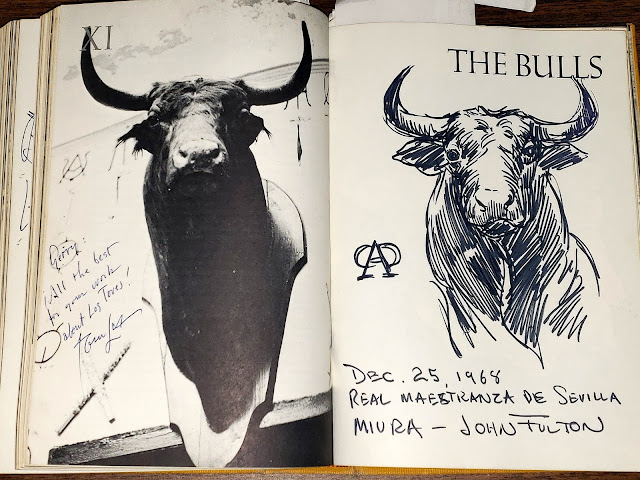 XI
Gerry:
All the best
for your work
about Los Toros!
THE BULLS
DEC. 25, 1968
REAL MAESTRANZA DE SEVILLA
MIURA - JOHN FULTON